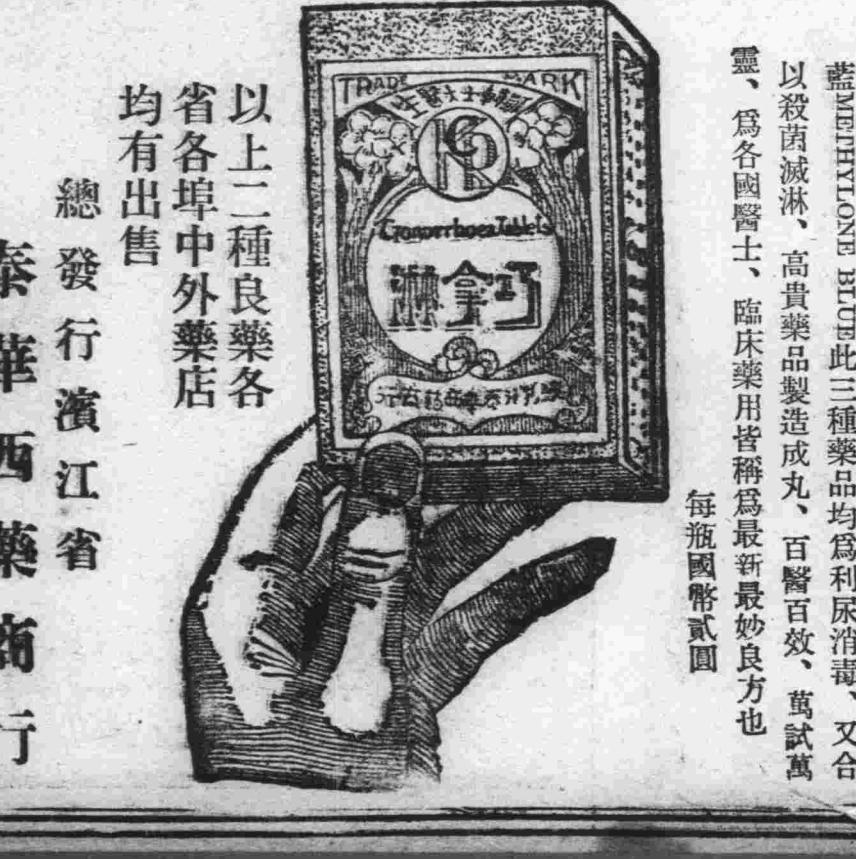 藍METHYLONE BLUE此三種藥品均爲利尿消毒、又合
以殺菌滅淋、高貴藥品製造成丸、百醫百效、萬試萬
靈、爲各國醫士、臨床藥用皆稱爲最新最妙良方也
每瓶國幣貳圓
TRADE MARK
Gonorrhoea Tablets
巧拿淋
以上二種良藥各
省各埠中外藥店
均有出售
總發行濱江省
泰華西藥商行